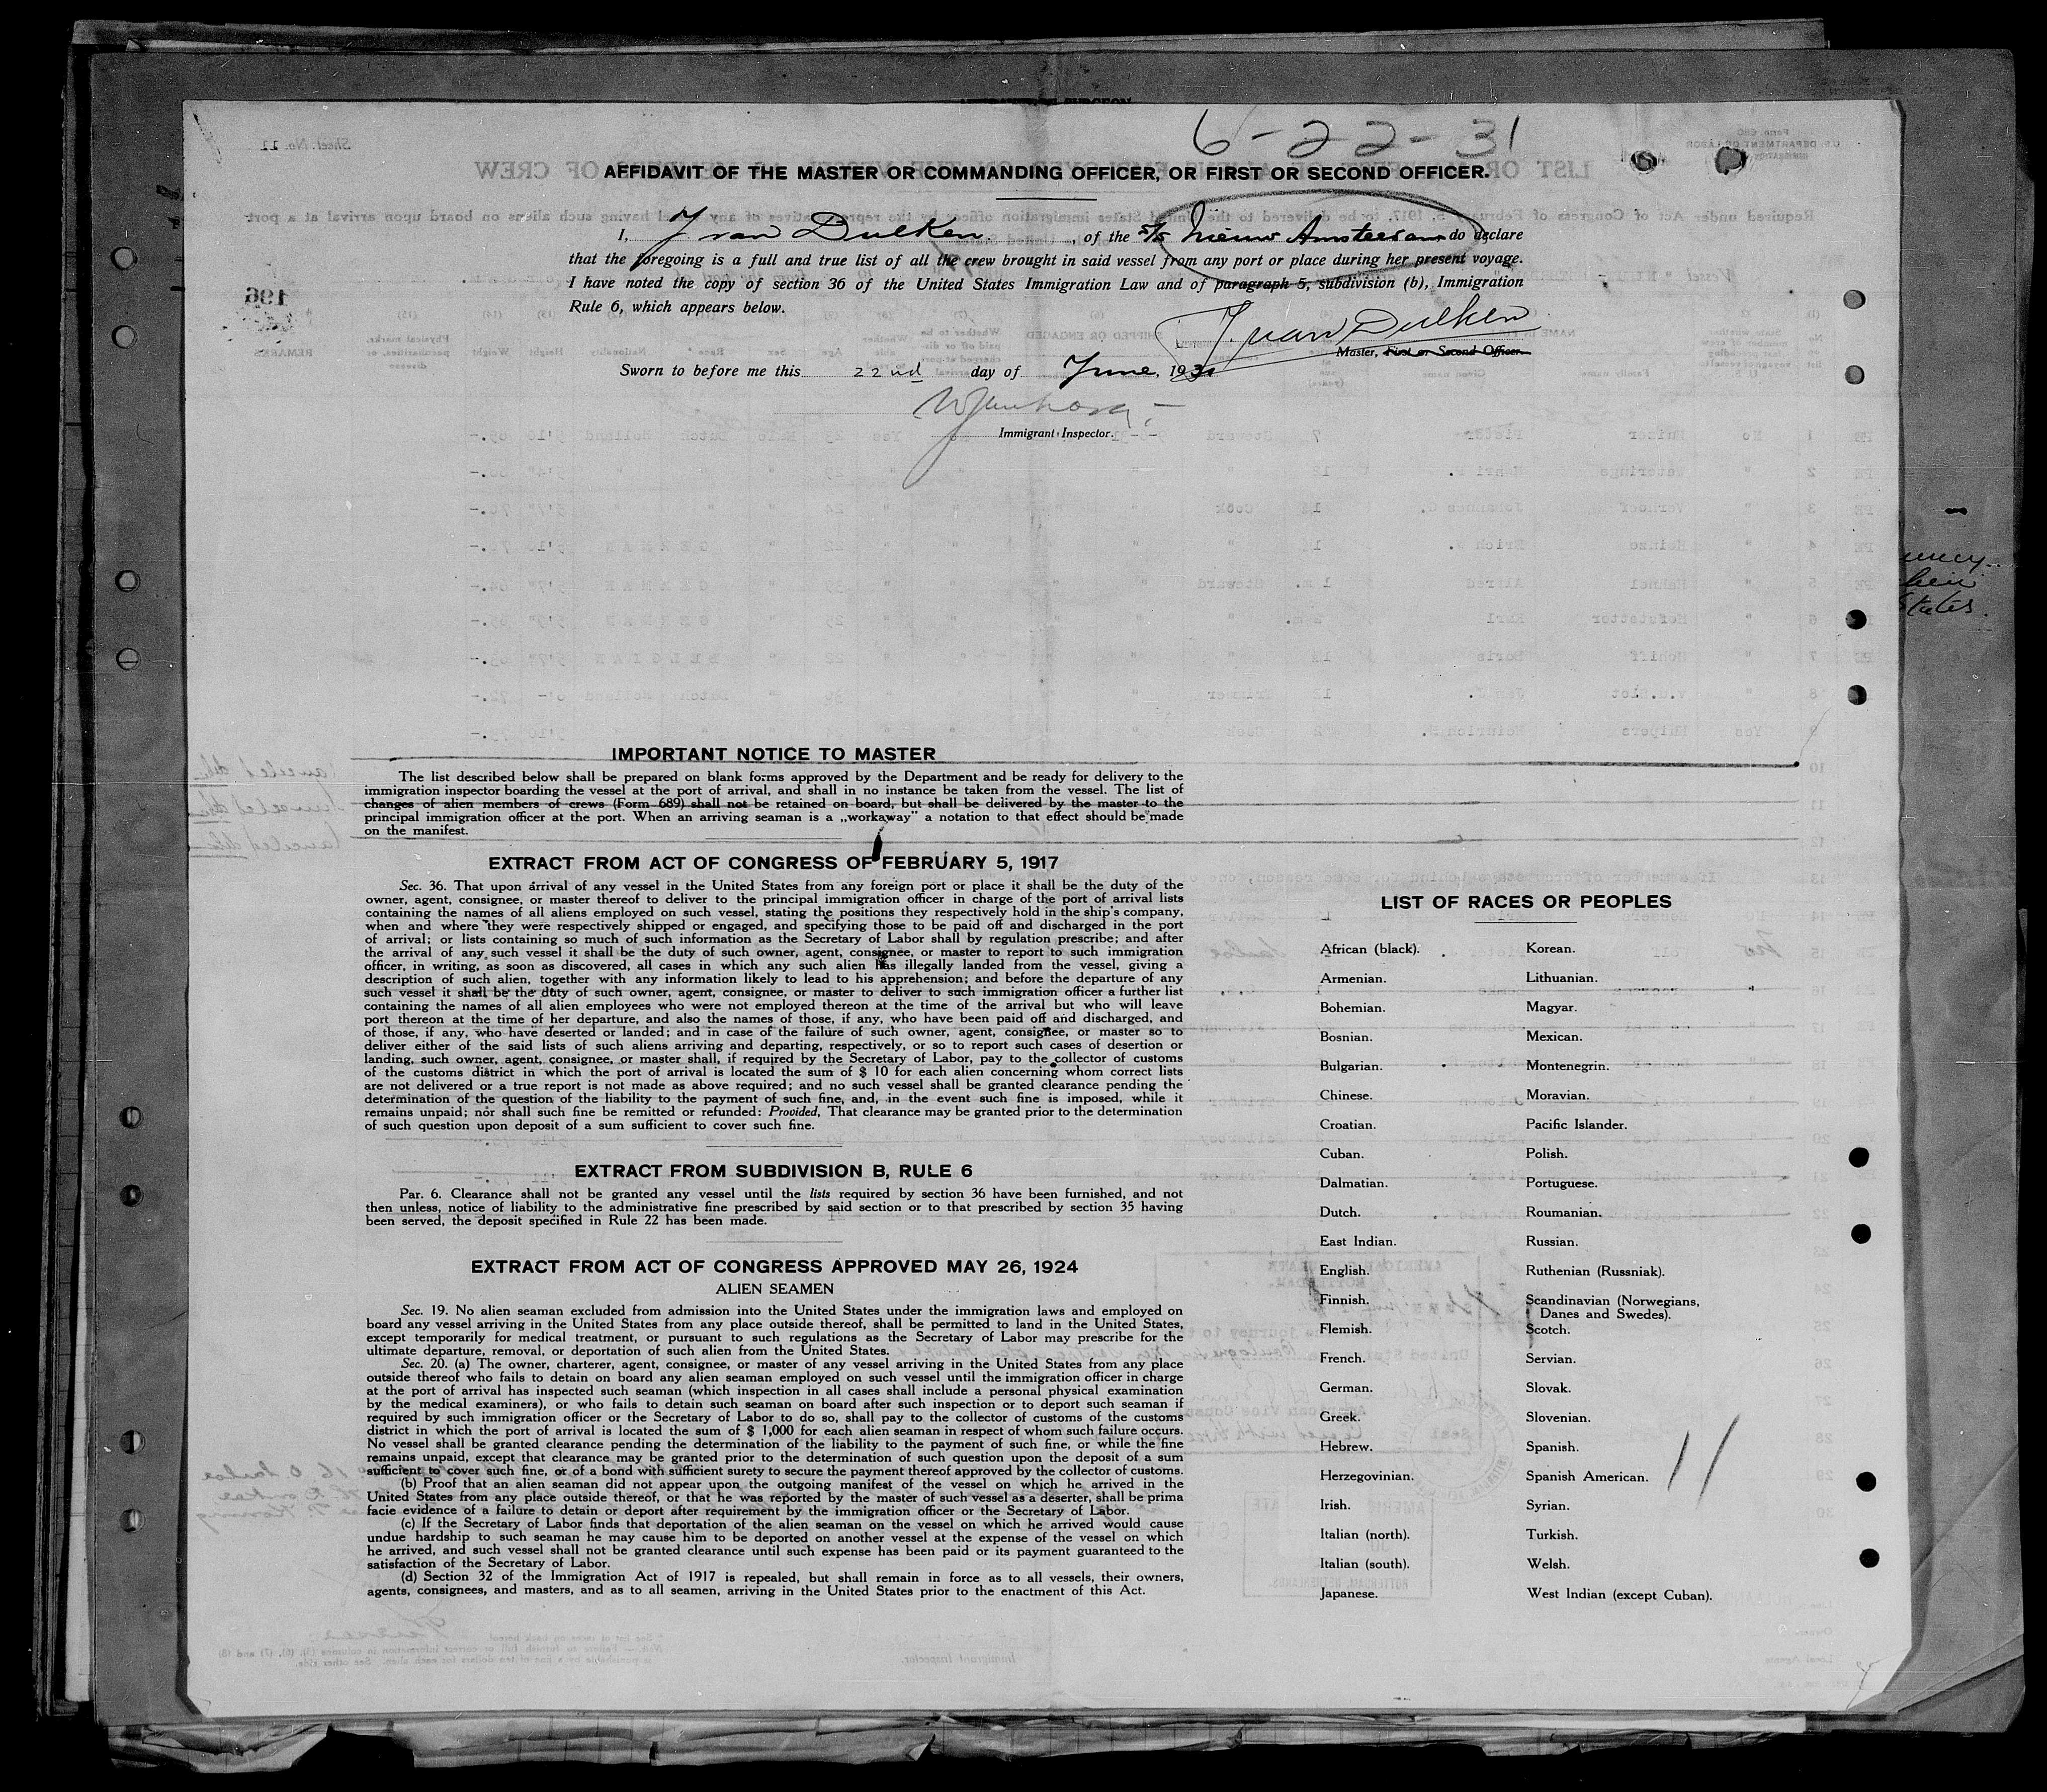 6-22-31
AFFIDAVIT OF THE MASTER OR COMMANDING OFFICER, OR FIRST OR SECOND OFFICER.
I, J van Dulken, of the S/S Nieuw Amsterdam do declare
that the foregoing is a full and true list of all the crew brought in said vessel from any port or place during her present voyage.
I have noted the copy of section 36 of the United States Immigration Law and of paragraph 5, subdivision (b), Immigration
Rule 6, which appears below.
J. van Dulken
Master, First or Second Officer.
Sworn to before me this 22nd day of June, 1931
Immigrant Inspector.
IMPORTANT NOTICE TO MASTER
The list described below shall be prepared on blank forms approved by the Department and be ready for delivery to the
immigration inspector boarding the vessel at the port of arrival, and shall in no instance be taken from the vessel. The list of
changes of alien members of crews (Form 689) shall not be retained on board, but shall be delivered by the master to the
principal immigration officer at the port. When an arriving seaman is a „workaway” a notation to that effect should be made
on the manifest.
EXTRACT FROM ACT OF CONGRESS OF FEBRUARY 5, 1917
Sec. 36. That upon arrival of any vessel in the United States from any foreign port or place it shall be the duty of the
owner, agent, consignee, or master thereof to deliver to the principal immigration officer in charge of the port of arrival lists
containing the names of all aliens employed on such vessel, stating the positions they respectively hold in the ship's company,
when and where they were respectively shipped or engaged, and specifying those to be paid off and discharged in the port
of arrival; or lists containing so much of such information as the Secretary of Labor shall by regulation prescribe; and after
the arrival of any such vessel it shall be the duty of such owner, agent, consignee, or master to report to such immigration
officer, in writing, as soon as discovered, all cases in which any such alien has illegally landed from the vessel, giving a
description of such alien, together with any information likely to lead to his apprehension; and before the departure of any
such vessel it shall be the duty of such owner, agent, consignee, or master to deliver to such immigration officer a further list
containing the names of all alien employees who were not employed thereon at the time of the arrival but who will leave
port thereon at the time of her departure, and also the names of those, if any, who have been paid off and discharged, and
of those, if any, who have deserted or landed; and in case of the failure of such owner, agent, consignee, or master so to
deliver either of the said lists of such aliens arriving and departing, respectively, or so to report such cases of desertion or
landing, such owner, agent, consignee, or master shall, if required by the Secretary of Labor, pay to the collector of customs
of the customs district in which the port of arrival is located the sum of $ 10 for each alien concerning whom correct lists
are not delivered or a true report is not made as above required; and no such vessel shall be granted clearance pending the
determination of the question of the liability to the payment of such fine, and, in the event such fine is imposed, while it
remains unpaid; nor shall such fine be remitted or refunded: Provided, That clearance may be granted prior to the determination
of such question upon deposit of a sum sufficient to cover such fine.
EXTRACT FROM SUBDIVISION B, RULE 6
Par. 6. Clearance shall not be granted any vessel until the lists required by section 36 have been furnished, and not
then unless, notice of liability to the administrative fine prescribed by said section or to that prescribed by section 35 having
been served, the deposit specified in Rule 22 has been made.
EXTRACT FROM ACT OF CONGRESS APPROVED MAY 26, 1924
ALIEN SEAMEN
Sec. 19. No alien seaman excluded from admission into the United States under the immigration laws and employed on
board any vessel arriving in the United States from any place outside thereof, shall be permitted to land in the United States,
except temporarily for medical treatment, or pursuant to such regulations as the Secretary of Labor may prescribe for the
ultimate departure, removal, or deportation of such alien from the United States.
Sec. 20. (a) The owner, charterer, agent, consignee, or master of any vessel arriving in the United States from any place
outside thereof who fails to detain on board any alien seaman employed on such vessel until the immigration officer in charge
at the port of arrival has inspected such seaman (which inspection in all cases shall include a personal physical examination
by the medical examiners), or who fails to detain such seaman on board after such inspection or to deport such seaman if
required by such immigration officer or the Secretary of Labor to do so, shall pay to the collector of customs of the customs
district in which the port of arrival is located the sum of $ 1,000 for each alien seaman in respect of whom such failure occurs.
No vessel shall be granted clearance pending the determination of the liability to the payment of such fine, or while the fine
remains unpaid, except that clearance may be granted prior to the determination of such question upon the deposit of a sum
sufficient to cover such fine, or of a bond with sufficient surety to secure the payment thereof approved by the collector of customs.
(b) Proof that an alien seaman did not appear upon the outgoing manifest of the vessel on which he arrived in the
United States from any place outside thereof, or that he was reported by the master of such vessel as a deserter, shall be prima
facie evidence of a failure to detain or deport after requirement by the immigration officer or the Secretary of Labor.
(c) If the Secretary of Labor finds that deportation of the alien seaman on the vessel on which he arrived would cause
undue hardship to such seaman he may cause him to be deported on another vessel at the expense of the vessel on which
he arrived, and such vessel shall not be granted clearance until such expense has been paid or its payment guaranteed to the
satisfaction of the Secretary of Labor.
(d) Section 32 of the Immigration Act of 1917 is repealed, but shall remain in force as to all vessels, their owners,
agents, consignees, and masters, and as to all seamen, arriving in the United States prior to the enactment of this Act.
LIST OF RACES OR PEOPLES
African (black). Korean.
Armenian. Lithuanian.
Bohemian. Magyar.
Bosnian. Mexican.
Bulgarian. Montenegrin.
Chinese. Moravian.
Croatian. Pacific Islander.
Cuban. Polish.
Dalmatian. Portuguese.
Dutch. Roumanian.
East Indian. Russian.
English. Ruthenian (Russniak).
Finnish. Scandinavian (Norwegians,
Danes and Swedes).
Flemish. Scotch.
French. Servian.
German. Slovak.
Greek. Slovenian.
Hebrew. Spanish.
Herzegovinian. Spanish American.
Irish. Syrian.
Italian (north). Turkish.
Italian (south). Welsh.
Japanese. West Indian (except Cuban).
11